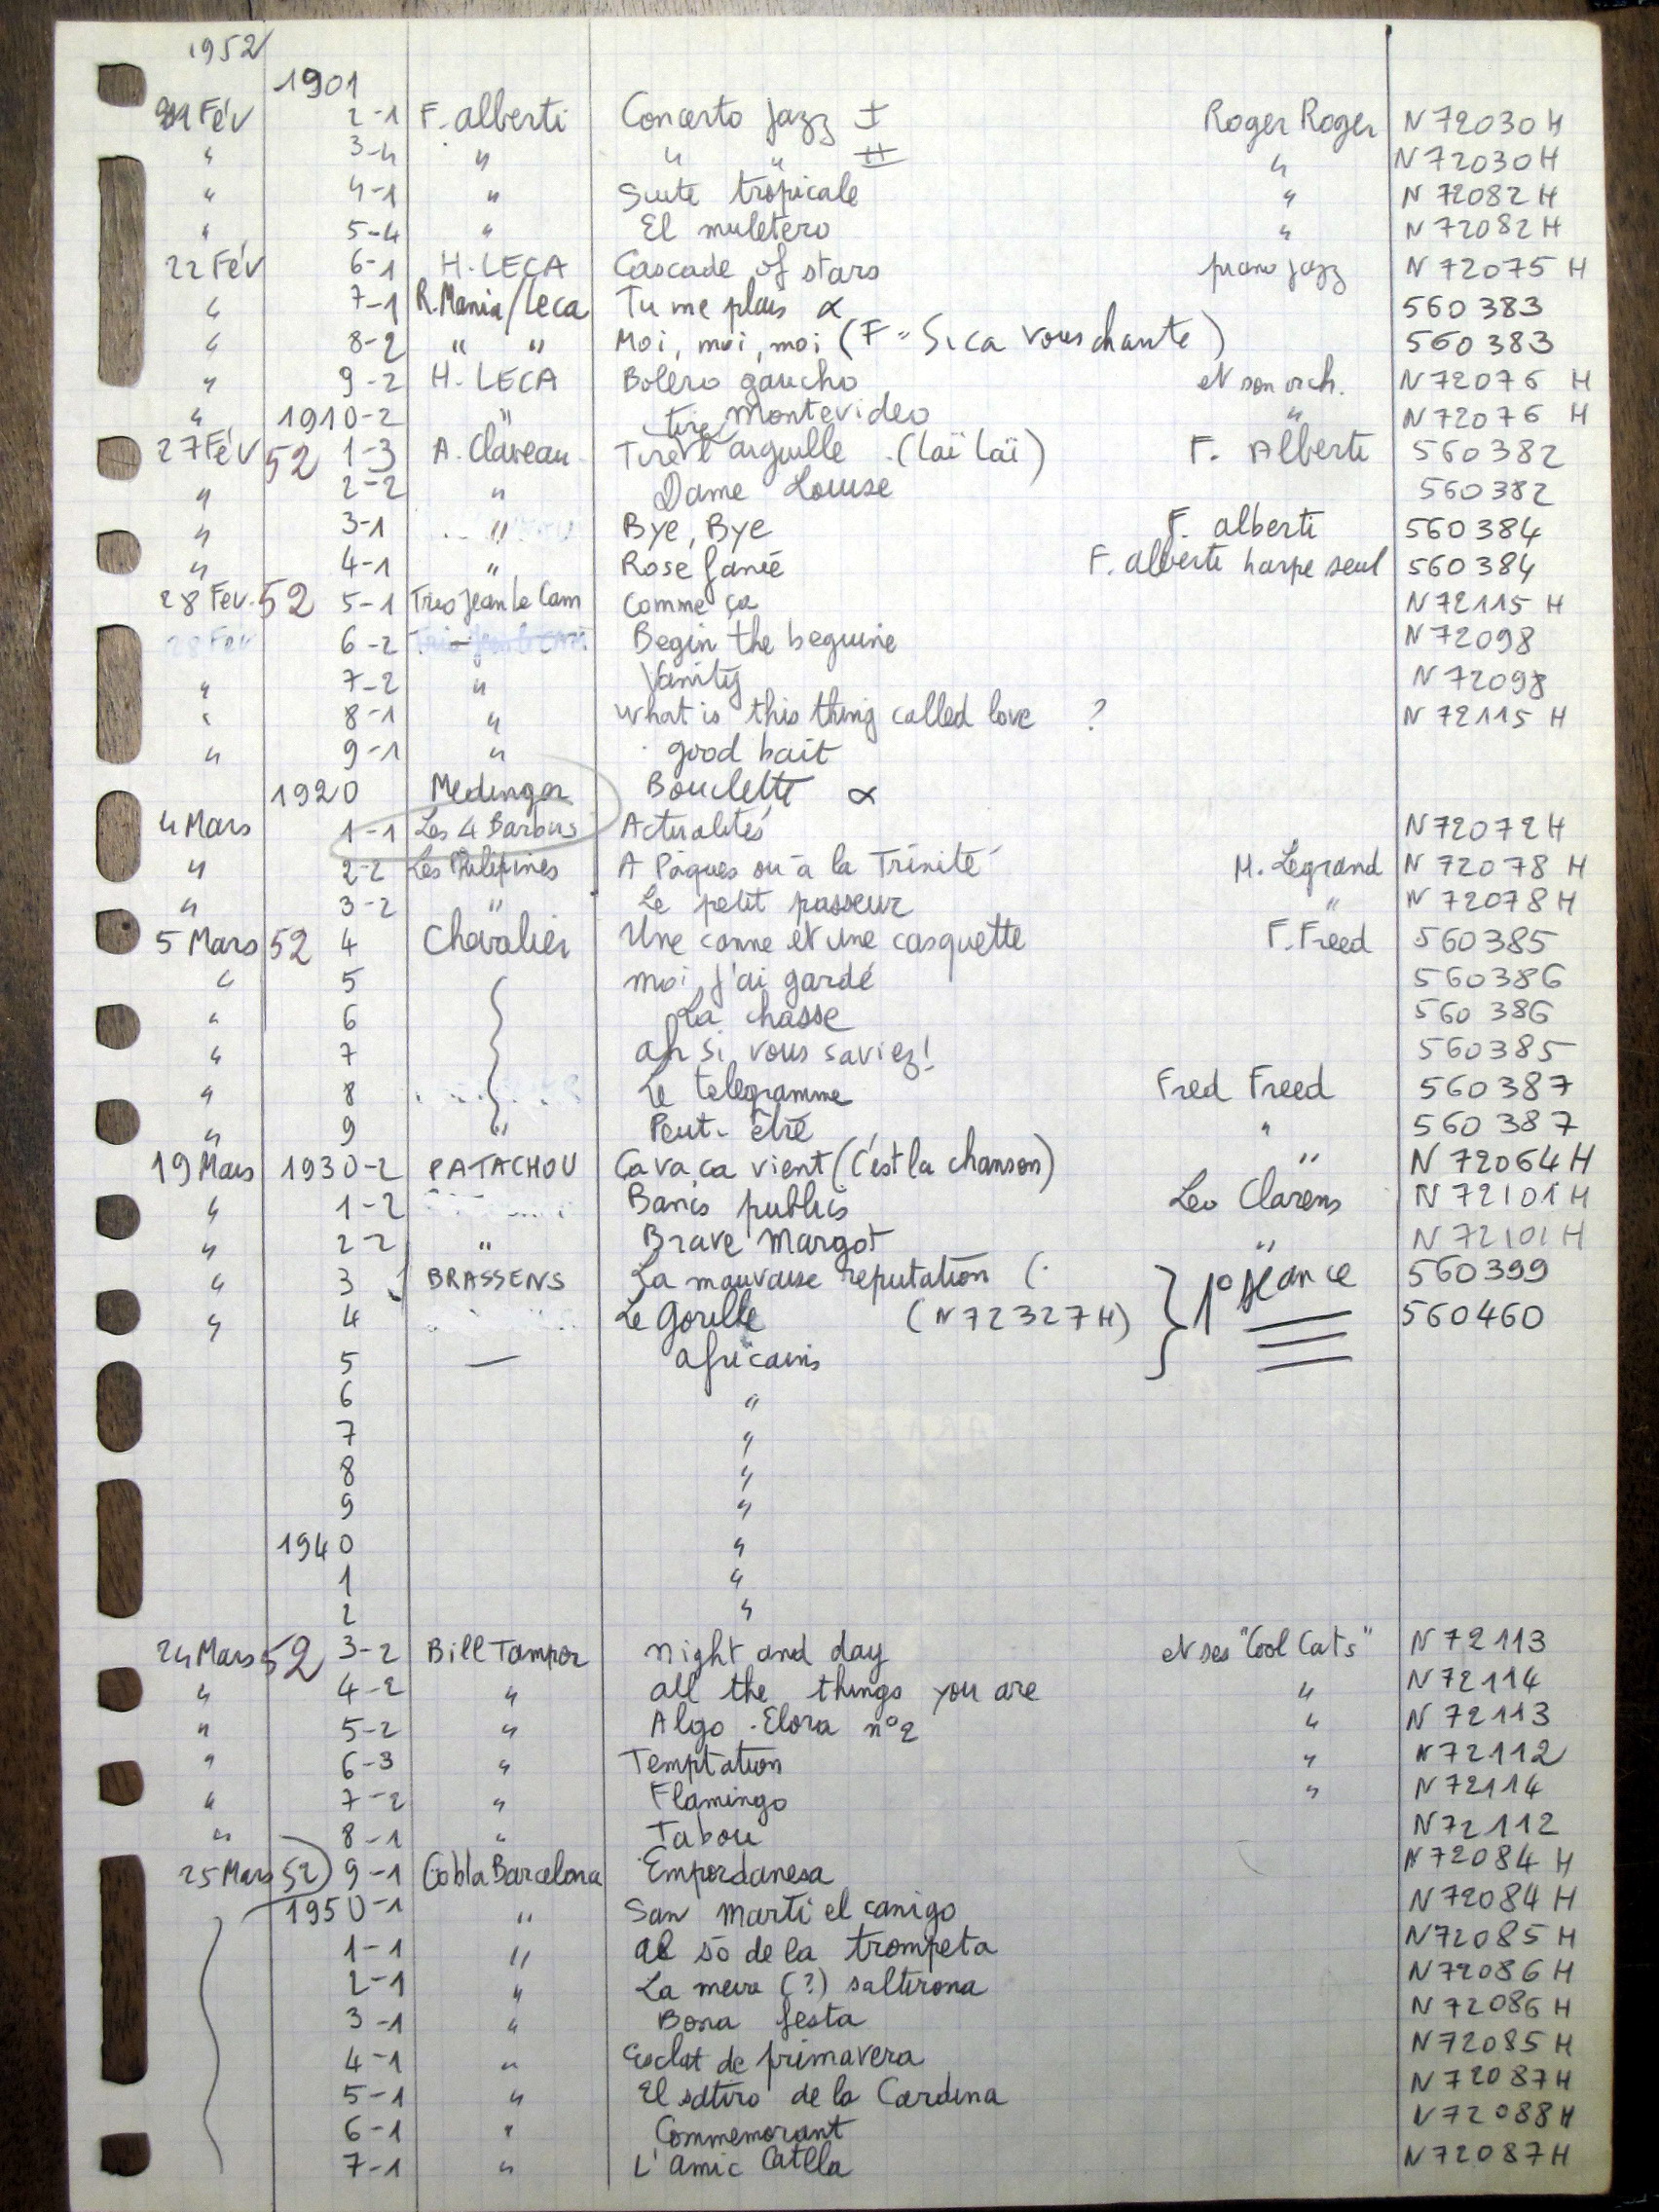 1952
1901
21 Fév 2-1 F. Alberti Concerto Jazz I Roger Roger N 72030 H
" 3-4 " " " II " N 72030 H
" 4-1 " Suite tropicale " N 72082 H
" 5-4 " El muletero " N 72082 H
22 Fév 6-1 H. LECA Cascade of stars piano jazz N 72075 H
" 7-1 R. Mania/Leca Tu me plais α 560 383
" 8-2 " " Moi, moi, moi (F = Si ca vous chante) 560 383
" 9-2 H. LECA Bolero gaucho et son orch. N 72076 H
" 1910-2 " Montevideo " N 72076 H
27 Fév 52 1-3 A. Claveau Tire tire l'aiguille (Laï Laï) F. Alberti 560382
" 2-2 " Dame Louise 560382
" 3-1 " Bye, Bye F. alberti 560384
" 4-1 " Rose fanée F. alberti harpe seul 560384
28 Fév. 52 5-1 Trio Jean Le Cam Comme ça N 72115 H
28 Fév 6-2 Begin the beguine N 72098
" 7-2 " Vanity N 72098
" 8-1 " What is this thing called love ? N 72115 H
" 9-1 " good bait
1920 Medinger Bouclette α
4 Mars 1-1 Les 4 Barbus Actualités N 72072 H
" 2-2 Les Philipines A Pâques ou à la Trinité M. Legrand N 72078 H
" 3-2 " Le petit passeur " N 72078 H
5 Mars 52 4 Chevalier Une canne et une casquette F. Freed 560385
" 5 moi j'ai gardé 560386
" 6 La chasse 560 386
" 7 ah si vous saviez! 560385
" 8 Le telegramme Fred Freed 560387
" 9 " Peut-être " 560 387
19 Mars 1930-2 PATACHOU Ca va, ca vient (c'est la chanson) " N 72064 H
" 1-2 Bancs publics Leo Clarens N 72101 H
" 2-2 " Brave Margot " N 72101 H
" 3 BRASSENS La mauvaise reputation (. 1° séance 560399
" 4 Le Gorille (N 72327 H) 560460
5 — africains
6 "
7 "
8 "
9 "
1940 "
1 "
2 "
24 Mars 52 3-2 Bill Tamper night and day et ses "Cool Cats" N 72113
" 4-2 " all the things you are " N 72114
" 5-2 " Algo. Elora n° 2 " N 72113
" 6-3 " Temptation " N 72112
" 7-2 " Flamingo " N 72114
" 8-1 " Tabou N 72112
25 Mars 52 9-1 Cobla Barcelona Empordanesa N 72084 H
1950-1 " San marti el canigo N 72084 H
1-1 " al so de la trompeta N 72085 H
2-1 " La meva (?) saltirona N 72086 H
3-1 " Bona festa N 72086 H
4-1 " Esclat de primavera N 72085 H
5-1 " El satiro de la Cardina N 72087 H
6-1 " Commemorant N 72088 H
7-1 " L'amic Catlla N 72087 H